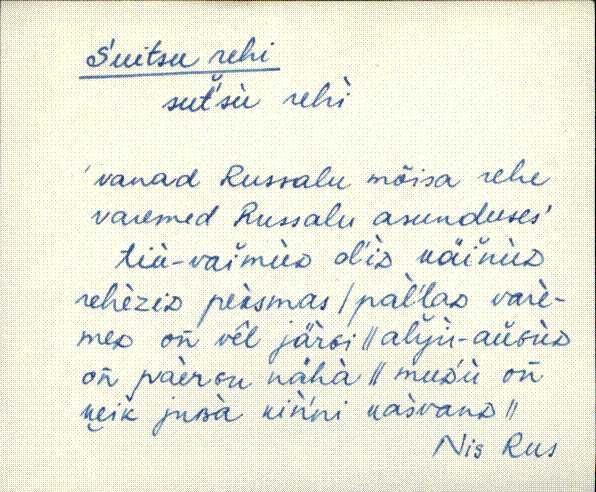 Suitsu rehi
sut'sù rehì
'vanad Russalu mõisa rehe
varemed Russalu asunduses'
tiù-vaimùᴅ ol'iᴅ käinùᴅ
rehèziᴅ pèäsmas / pàl'laᴅ varè-
meᴅ oñ vêl järʙi ‖ al̬ju-aùɢùᴅ
oñ pàerɢu nähà ‖ muᴅ'ù oñ
keik jussà kiñ'ni kàsvanᴅ ‖
Nis Rus